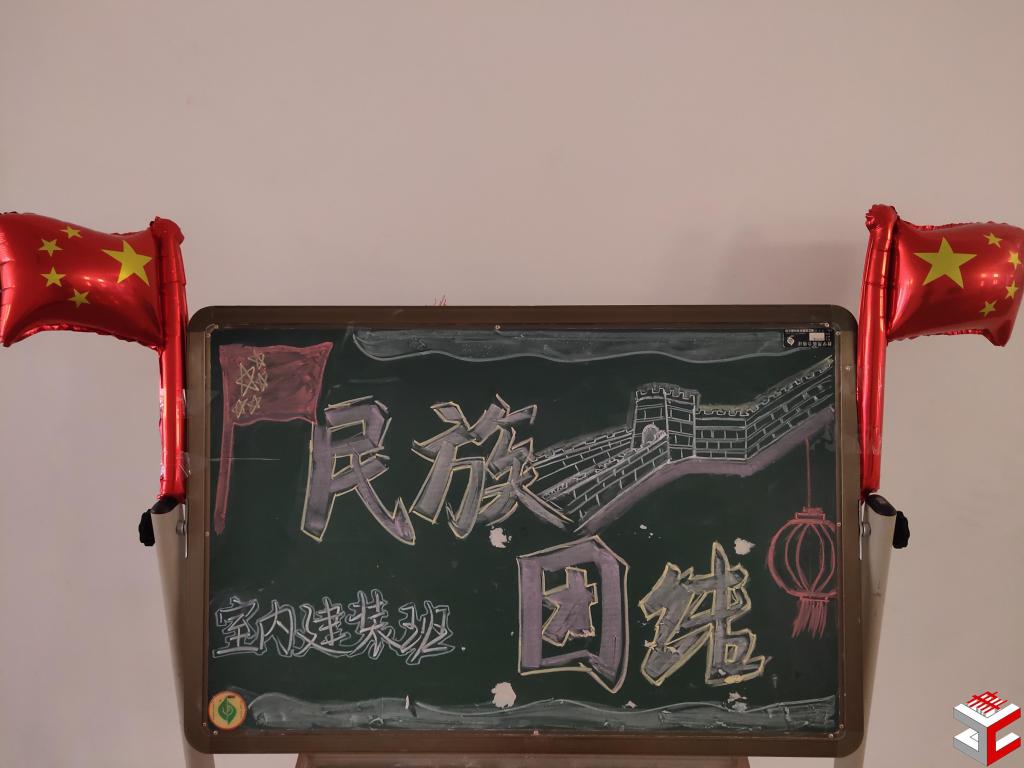 民族
团结
室内建装班